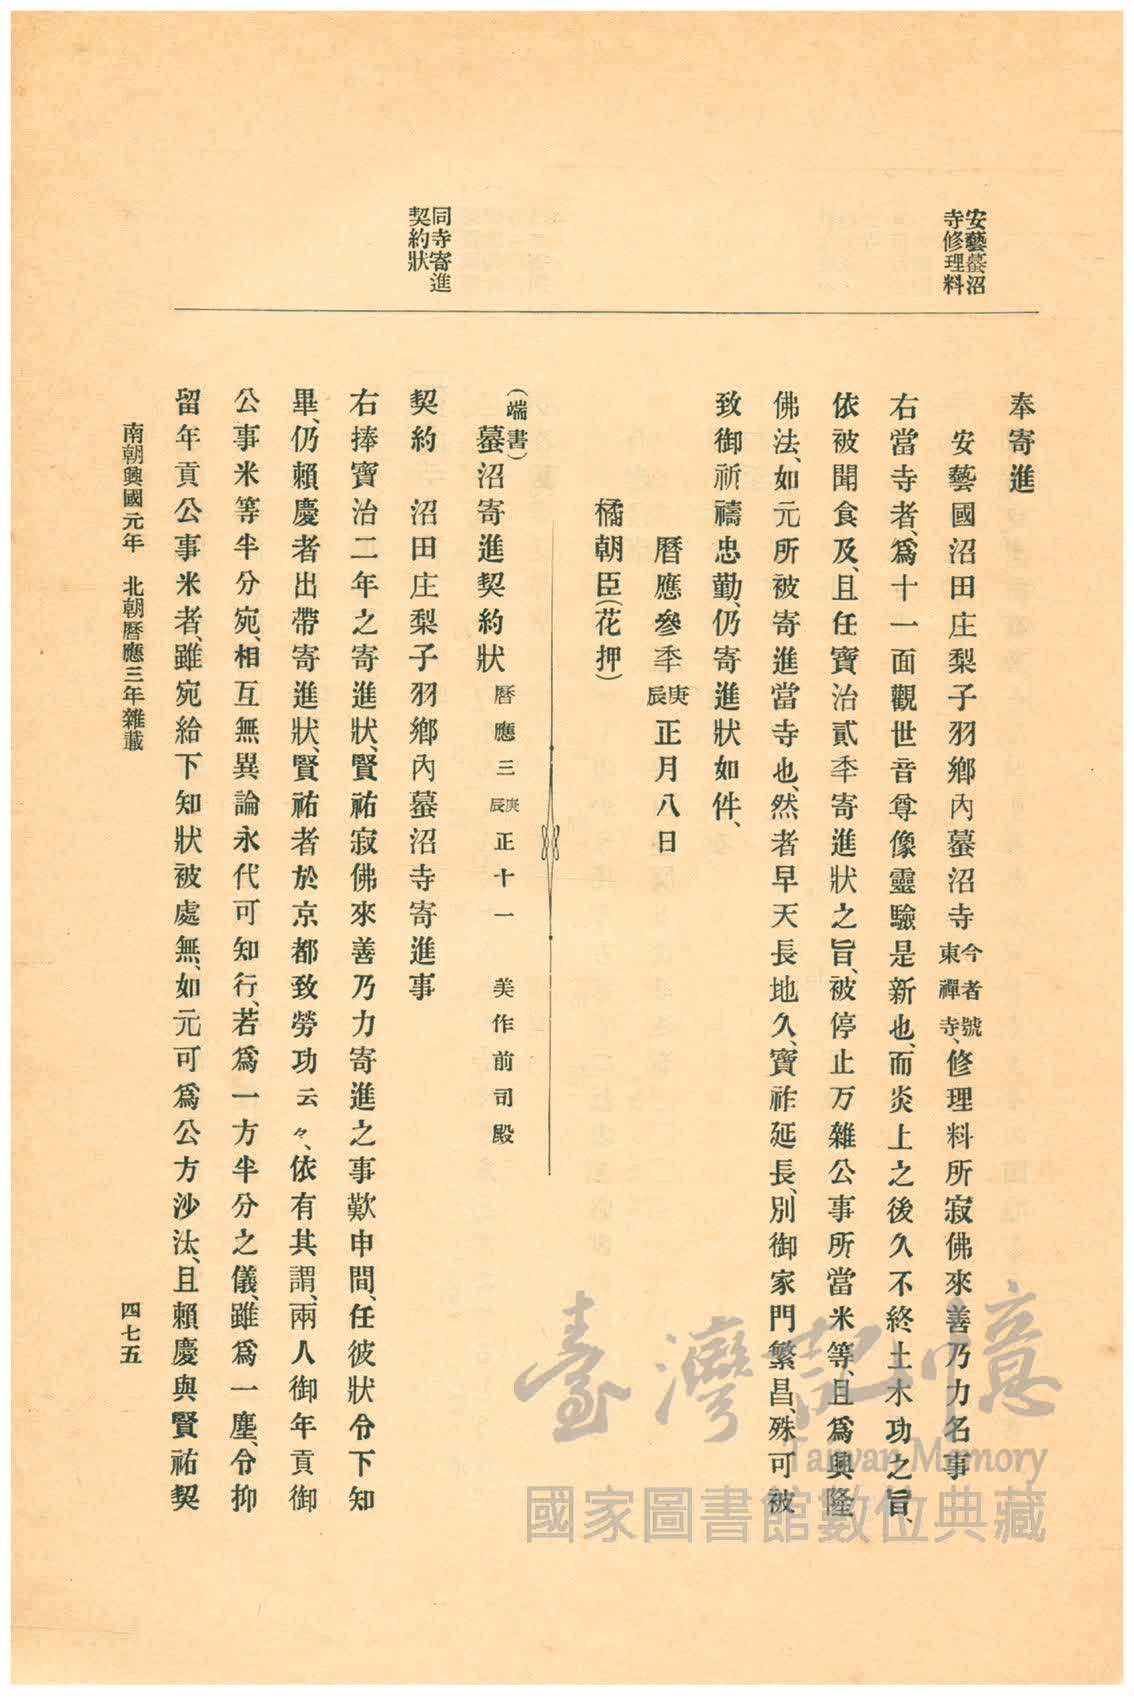 安藝蟇沼
寺修理料
奉寄進
安藝國沼田庄梨子羽鄕內蟇沼寺今者號東禪寺、修理料所寂佛來善乃力名事
右當寺者、爲十一面觀世音尊像靈驗是新也、而炎上之後久不終土木功之旨、
依被聞食及、且任寶治貳秊寄進狀之旨、被停止万雜公事所當米等、且爲興隆
佛法、如元所被寄進當寺也、然者早天長地久、寶祚延長、別御家門繁昌、殊可被
致御祈禱忠勤、仍寄進狀如件、
曆應參秊庚辰正月八日
橘朝臣(花押)
同寺寄進
契約狀
(端書)
蟇沼寄進契約狀 曆應三庚辰正十一 美作前司殿
契約 沼田庄梨子羽鄕內蟇沼寺寄進事
右捧寶治二年之寄進狀、賢祐寂佛來善乃力寄進之事歎申間、任彼狀令下知
畢、仍賴慶者出帶寄進狀、賢祐者於京都致勞功云々、依有其謂、兩人御年貢御
公事米等半分宛、相互無異論永代可知行、若爲一方半分之儀、雖爲一塵、令抑
留年貢公事米者、雖宛給下知狀被處無、如元可爲公方沙汰、且賴慶與賢祐契
南朝興國元年 北朝曆應三年雜載
四七五
臺灣記憶
Taiwan Memory
國家圖書館數位典藏